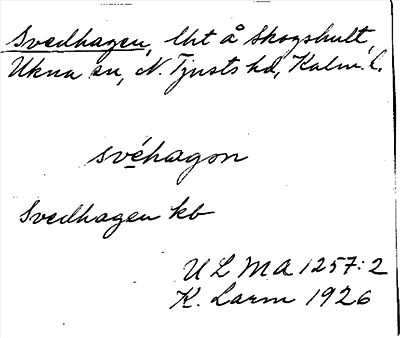 Svedhagen, lht å Skogshult,
Ukna sn, N. Tjusts hd, Kalm. l.
svéhagon
Svedhagen kb
ULMA 1257:2
K. Larm 1926